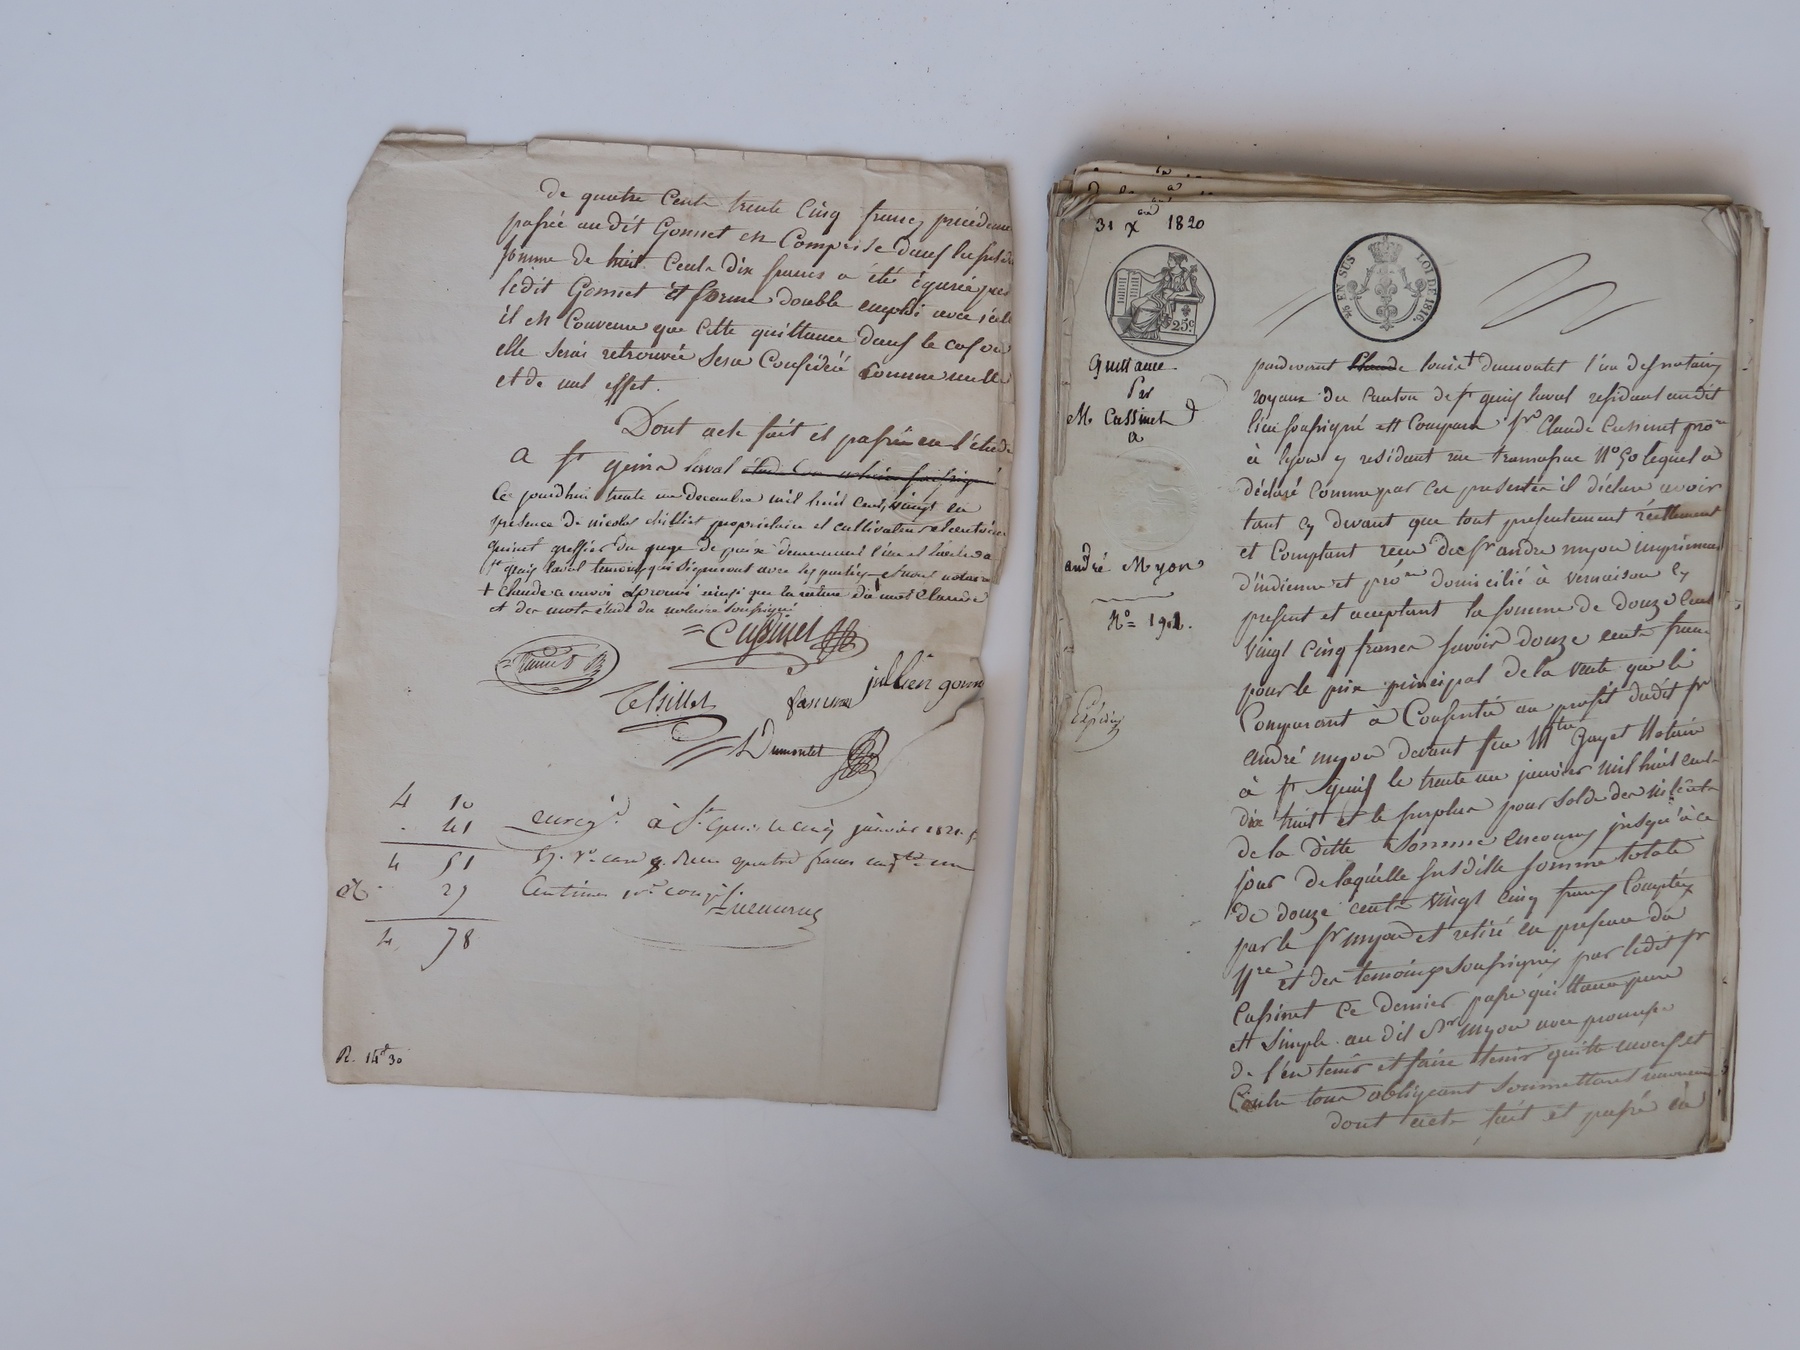 de quatre Cents trente Cinq francs précédemment
passée audit Gonnet et Comprise dans la susdite
somme de huit Cents dix francs a été égarée par
ledit Gonnet et forme double emploi avec icelle
il est Convenu que cette quittance dans le cas ou
elle serai retrouvée sera Considéré Comme nulle
et de nul effet.
Dont acte fait et passé en l'étude
A St genis Laval étude du notaire soussigné
Ce jourdhui trente un decembre mil huit Cent vingt en
présence de nicolas thillet propriétaire et cultivateur et
quinet greffier du juge de paix demeurant l'un et l'autre a
St genis laval temoins qui signeront avec les parties et nous notaire
+ Claude a renvoi approuvé ainsi que la rature du mot Claude
et des mots étude du notaire soussigné
Cussinet
Thillet
julien gonnet
Dumontet
4 10
. 41
4 51
. 27
4 78
enreg. à St Genis le cinq janvier 1821
Vo case 8. Reçu quatre francs cinqte un
Centimes
R. 14d 30
31 Xbre 1820
25 EN SUS LOI DE 1816.
25c.
Quittance
Par
M. Cussinet
a
andré Myon
No 191.
Expédié
pardevant Claude louis + dumontet l'un des notaires
royaux du Canton de St genis laval résidant audit
lieu soussigné est Comparu Sr Claude Cussinet pro.re
à lyon y residant rue tramassac No 50 lequel a
déclaré comme par ces présentes il déclare avoir
tant cy devant que tout présentement réellement
et Comptant reçu du sr andre myon imprimeur
d'indienne et pro.re domicilié à vernaison cy
présent et acceptant la somme de douze Cent
vingt cinq francs savoir douze cents francs
pour le prix principal de la vente que le
Comparant a Consentie au profit dudit sr
andré myon devant feu Mtre Gayet Notaire
à St genis le trente un janvier mil huit cent
dix huit et le surplus pour solde des intérêts
de la ditte somme encourus jusqu'à ce
jour de laquelle susditte somme totale
de douze cents vingt cinq francs Comptéz
par le sr myon et retiré en présence du
Nre et des temoins soussignés par ledit sr
Cussinet Ce dernier passe quittance pure
et simple audit Sr myon avec promesse
de l'en tenir et faire tenir quitte envers et
Contre tous obligeant soumettant renonçant
dont acte fait et passé en